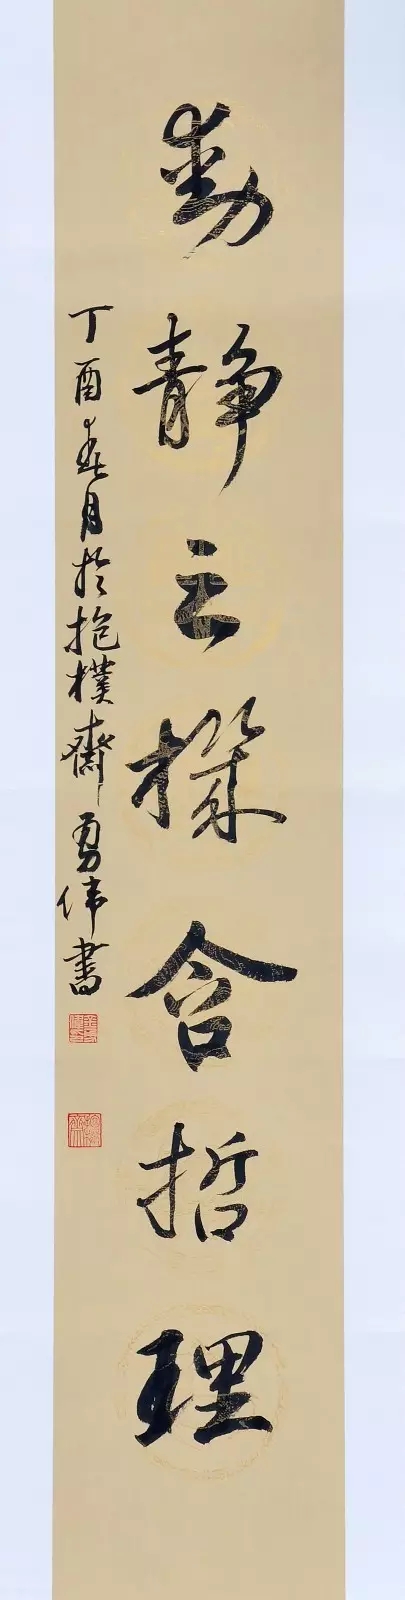 動靜之機含哲理
丁酉春月於抱樸齋勇偉書